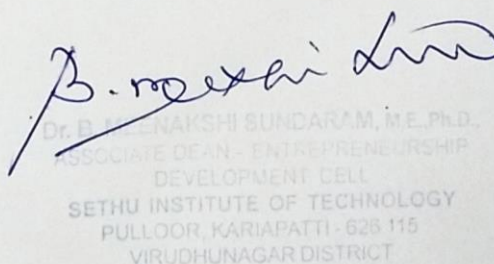 Dr. B. MEENAKSHI SUNDARAM, M.E.,Ph.D.,
ASSOCIATE DEAN - ENTREPRENEURSHIP
DEVELOPMENT CELL
SETHU INSTITUTE OF TECHNOLOGY
PULLOOR, KARIAPATTI - 626 115
VIRUDHUNAGAR DISTRICT